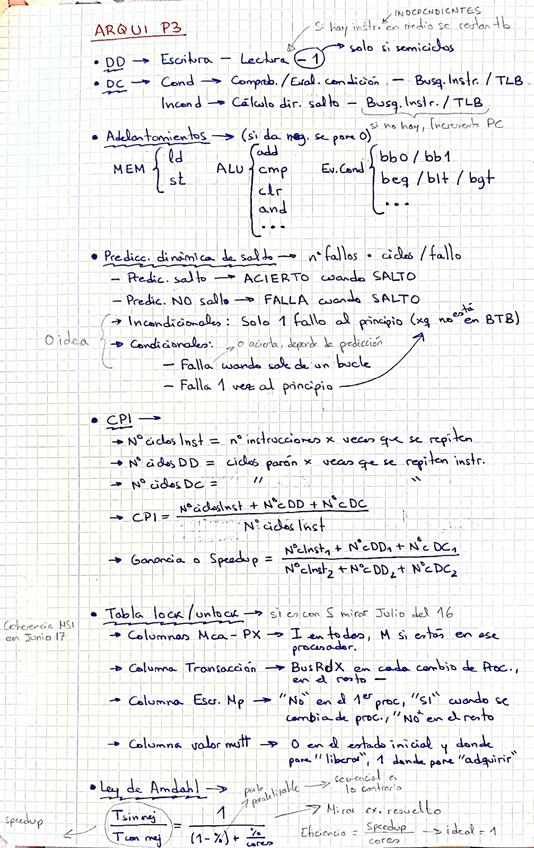 ARQUI P3
INDEPENDIENTES
Si hay instr. en medio se restan tb
• DD → Escritura - Lectura -1 → solo si semiciclos
• DC → Cond → Comprob./Eval. condición - Busq. Instr. / TLB
Incond → Cálculo dir. salto - Busq. Instr. / TLB
si no hay, Incremento PC
• Adelantamientos → (si da neg. se pone 0)
MEM { ld st
ALU { add cmp clr and ...
Ev. Cond { bb0 / bb1 beq / blt / bgt ...
• Predicc. dinámica de salto → nº fallos · ciclos / fallo
- Predic. salto → ACIERTO cuando SALTO
- Predic. NO salto → FALLA cuando SALTO
→ Incondicionales: Solo 1 fallo al principio (xq no está en BTB)
0 idea
→ Condicionales: → o acierta, depende de predicción
- Falla cuando sale de un bucle
- Falla 1 vez al principio
• CPI →
→ Nº ciclos Inst = nº instrucciones x veces que se repiten
→ Nº ciclos DD = ciclos parón x veces que se repiten instr.
→ Nº ciclos DC = " "
→ CPI = Nº ciclos Inst + Nº c DD + Nº c DC / Nº ciclos Inst
→ Ganancia o Speedup = Nº c Inst₁ + Nº c DD₁ + Nº c DC₁ / Nº c Inst₂ + Nº c DD₂ + Nº c DC₂
• Tabla lock/unlock → si es con S mirar Julio del 16
Coherencia MSI
en Junio 17
→ Columnas Mca-PX → I en todos, M si estás en ese
procesador.
→ Columna Transacción → BusRdX en cada cambio de Proc.,
en el resto -
→ Columna Escr. Mp → "No" en el 1er proc, "SI" cuando se
cambia de proc., "No" en el resto
→ Columna valor mutt → 0 en el estado inicial y donde
pone "liberar", 1 donde pone "adquirir"
• Ley de Amdahl → parte paralelizable → secuencial es
lo contrario
speedup
T sin mej / T con mej = 1 / (1-%) + %/cores
→ Mirar ex. resuelto
Eficiencia = Speedup / cores → ideal = 1